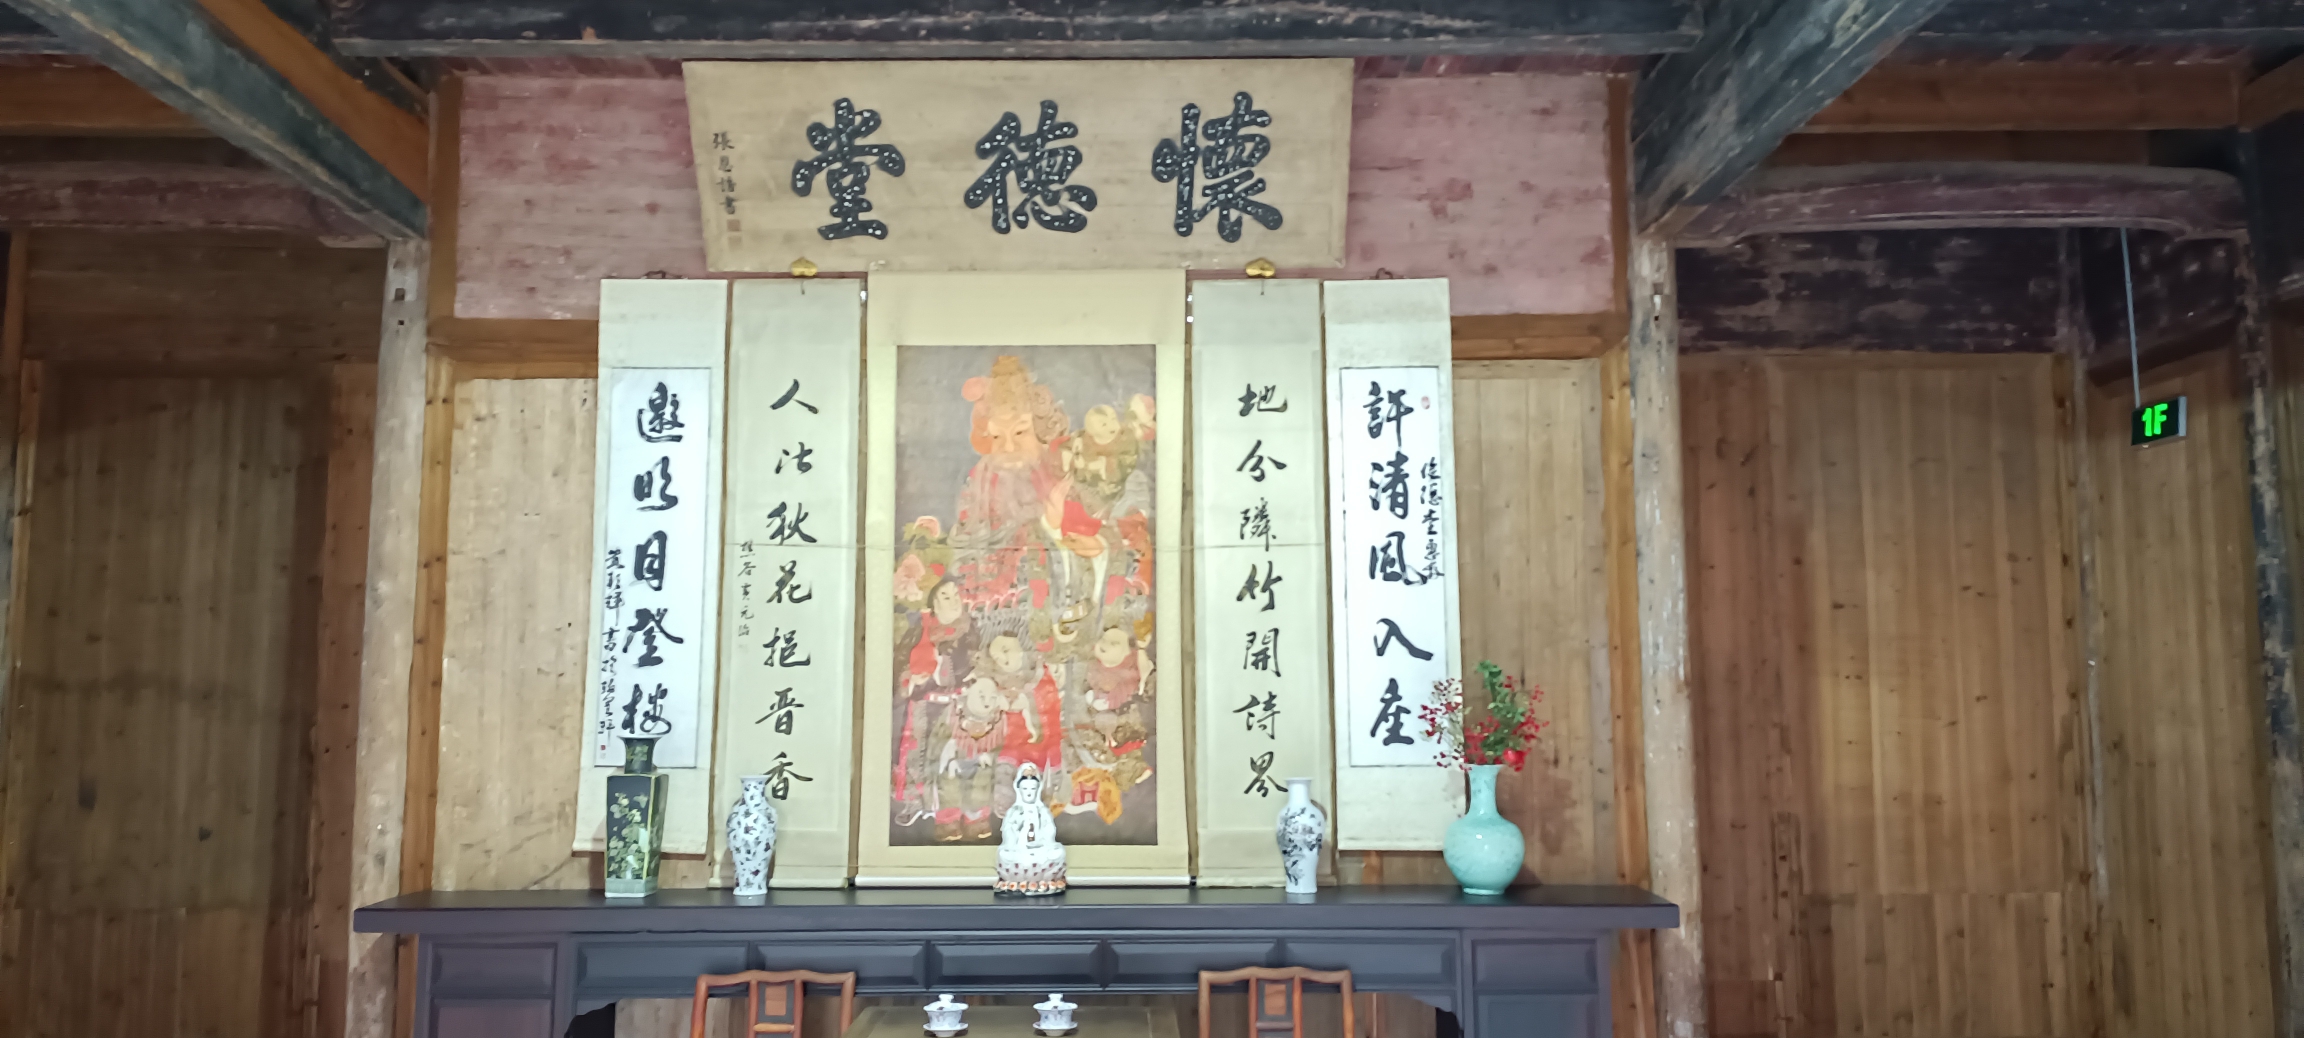 懷德堂
張恩諧書
許清風入座
地分隣竹開詩界
人沽秋花挹晋香
黄元治
邀明月登樓
1F